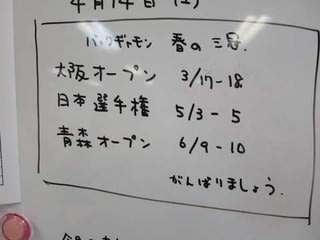 4月14日(土)
バックギャモン 春の三冠.
大阪オープン 3/17-18
日本選手権 5/3-5
青森オープン 6/9-10
がんばりましょう.